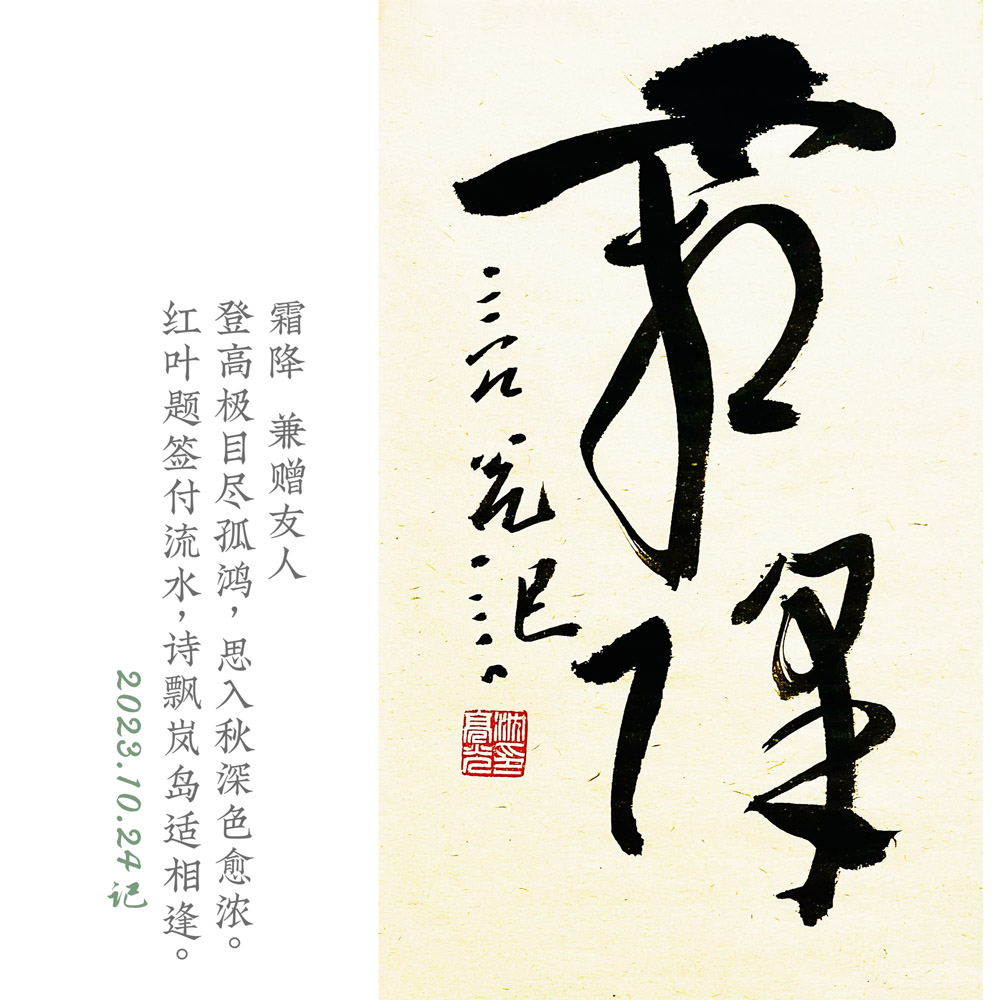 霜降
霜降 兼赠友人
登高极目尽孤鸿，思入秋深色愈浓。
红叶题签付流水，诗飘岚岛适相逢。
2023.10.24 记